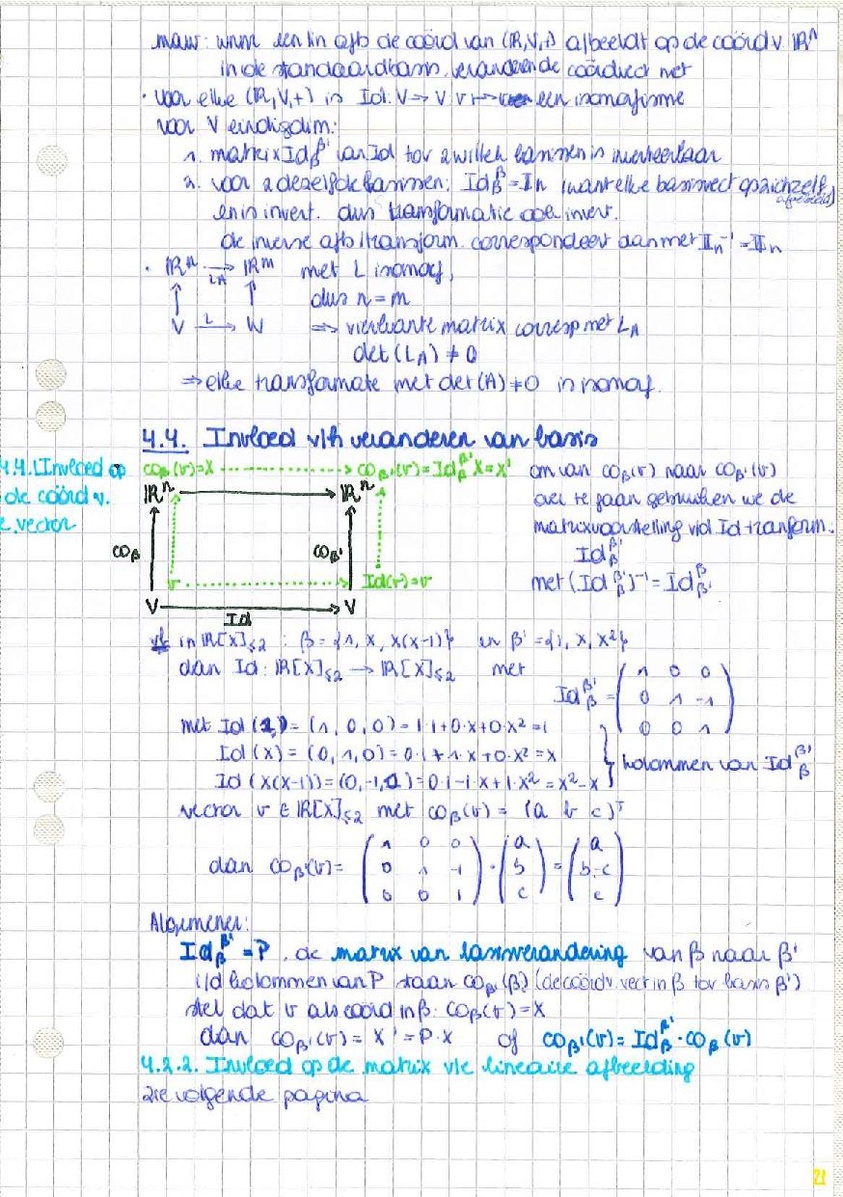 maw: wnm een lin afb de coörd van (ℝ,V,+) afbeeldt op de coörd v. ℝⁿ
in de standaardbasis, veranderen de coördvect niet
· voor elke (ℝ,V,+) is Id: V→V: v↦ een isomorfisme
voor V eindigdim:
1. matrix Id_β^β' van Id tov 2 willek bassisen is inverteerbaar
2. voor 2 dezelfde bassisen: Id_β^β = I_n (want elke basisvect op zichzelf afgebeeld)
en is invert. dus transformatie ook invert.
de inverse afb/transform. correspondeert dan met I_n⁻¹ = I_n
· ℝⁿ →(L_A) ℝᵐ met L isomorf,
↑ ↑ dus n = m
V →(L) W ⇒ vierkante matrix corresp met L_A
det(L_A) ≠ 0
⇒ elke transformatie met det(A) ≠ 0 is isomorf.
4.4. Invloed v/h veranderen van basis
4.4.1 Invloed op de coörd v. e vector
co_β(v)=X → co_β'(v)=Id_β^β' X=X'
ℝⁿ → ℝⁿ
co_β co_β'
v → Id(v)=v
V → V
Id
om van co_β(v) naar co_β'(v)
over te gaan gebruiken we de
matrixvoorstelling v/d Id-tranform.
Id_β^β'
met (Id_β^β')⁻¹ = Id_β'^β
vb in ℝ[X]≤2 : β={1, X, X(X-1)} en β'={1, X, X²}
dan Id: ℝ[X]≤2 → ℝ[X]≤2 met Id_β^β' = ( 1 0 0
0 1 -1
0 0 1 )
met Id(1) = (1, 0, 0) = 1·1+0·X+0·X² = 1
Id(X) = (0, 1, 0) = 0·1+1·X+0·X² = X
Id(X(X-1)) = (0,-1,1) = 0·1-1·X+1·X² = X²-X
} kolommen van Id_β^β'
vector v ∈ ℝ[X]≤2 met co_β(v) = (a b c)ᵀ
dan co_β'(v) = ( 1 0 0 ; 0 1 -1 ; 0 0 1 ) · ( a ; b ; c ) = ( a ; b-c ; c )
Algemener:
Id_β^β' = P, de matrix van basisverandering van β naar β'
i/d kolommen van P staan co_β'(β) (de coörd v. vect in β tov basis β')
stel dat v als coörd in β: co_β(v) = X
dan co_β'(v) = X' = P·X of co_β'(v) = Id_β^β' · co_β(v)
4.2.2. Invloed op de matrix v/e lineaire afbeelding
zie volgende pagina
21